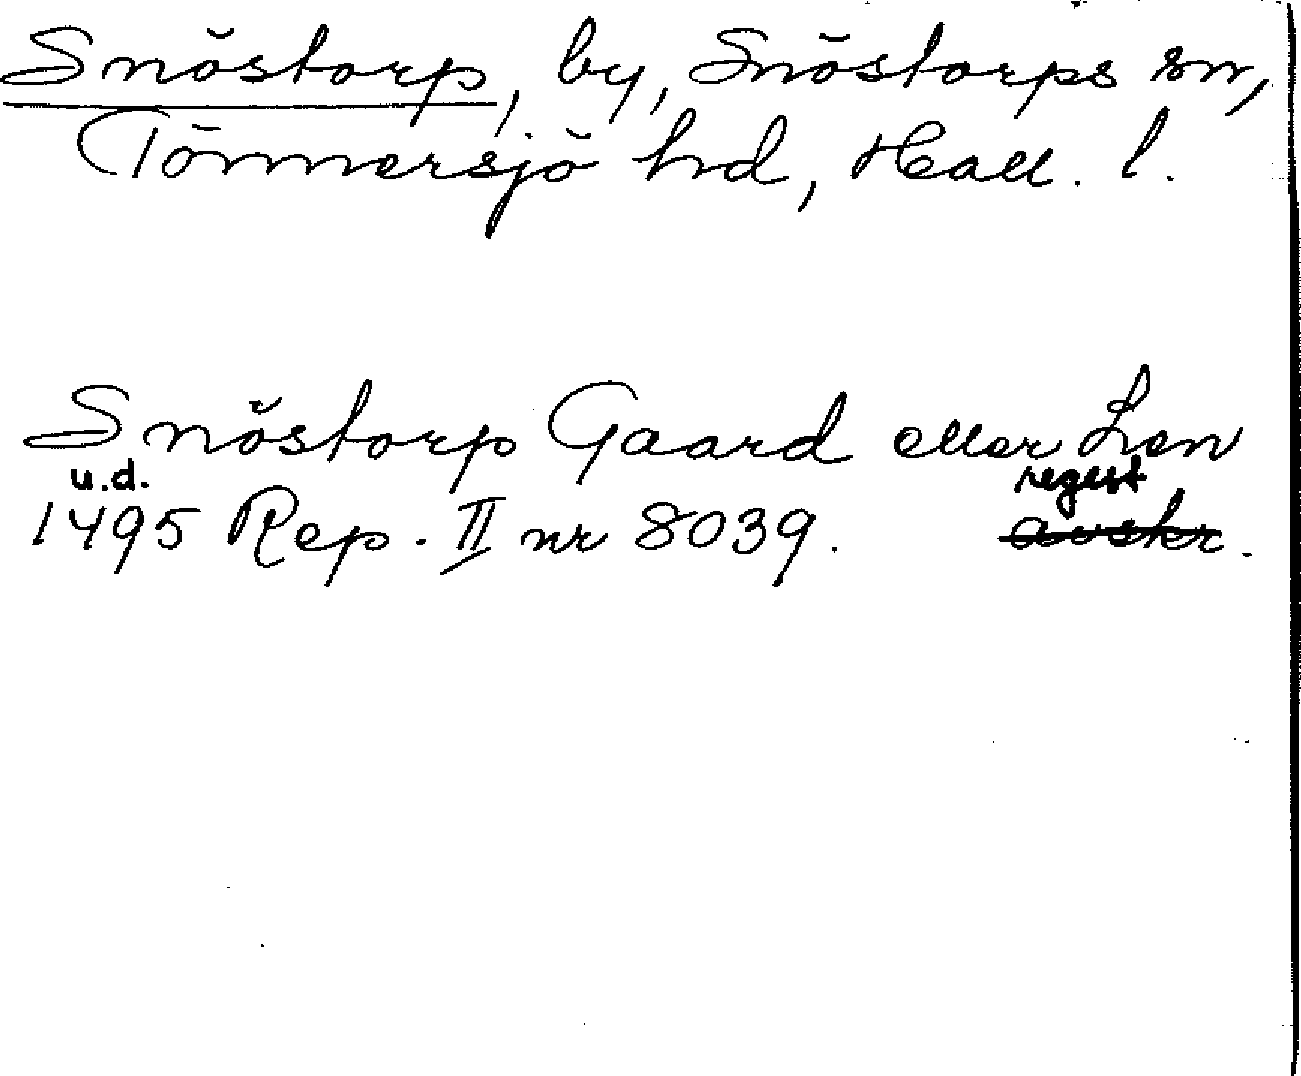 Snöstorp, by, Snöstorps sn,
Tönnersjö hd, Hall. l.
Snöstorp Gaard eller Len
u.d. regest
1495 Rep. II nr 8039. avskr.